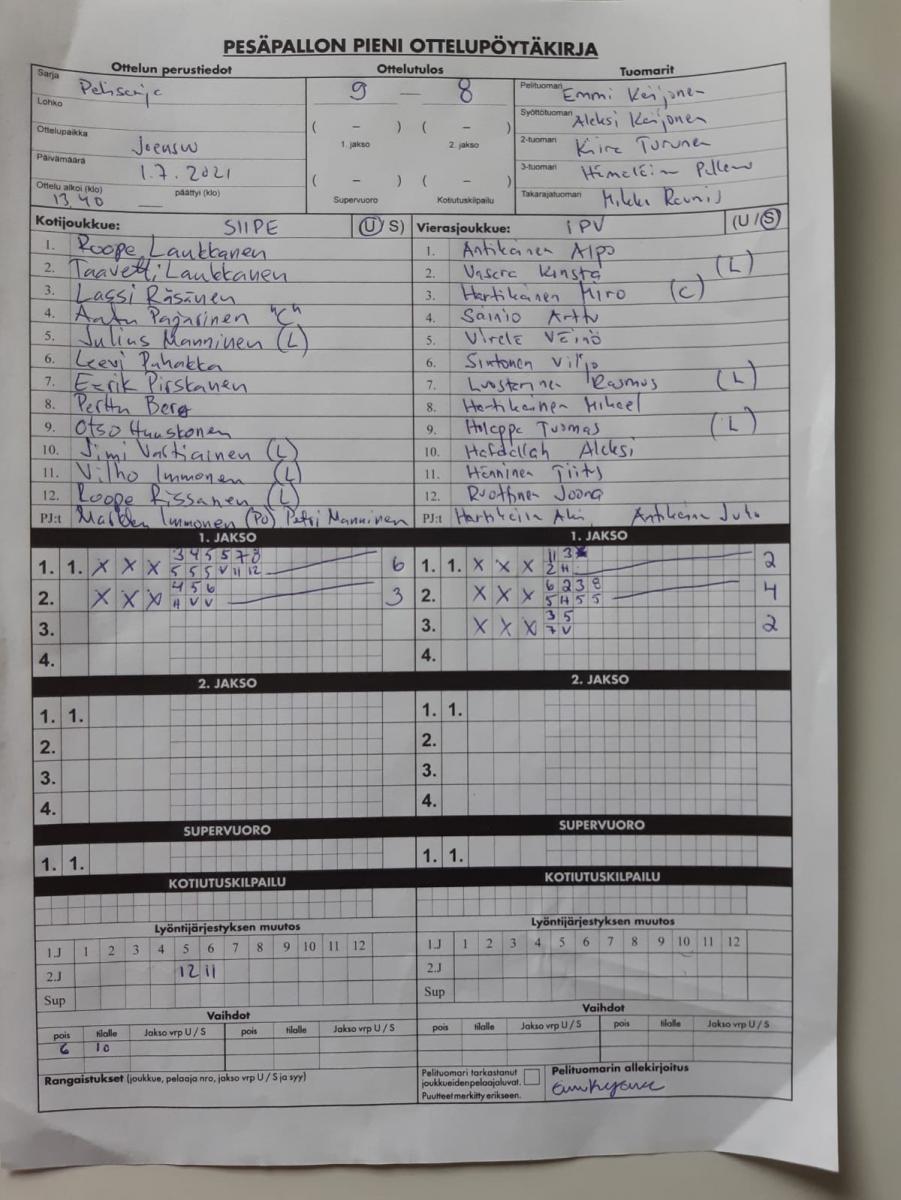 PESÄPALLON PIENI OTTELUPÖYTÄKIRJA
Ottelun perustiedot Ottelutulos Tuomarit
Sarja 9 — 8 Pelituomari Emmi Keijonen
Lohko Syöttötuomari Aleksi Keijonen
Ottelupaikka Joensuu ( – ) ( – ) 2-tuomari Turunen
1. jakso 2. jakso
Päivämäärä 1.7.2021 3-tuomari
Ottelu alkoi (klo) päättyi (klo) ( – ) ( – ) Takarajatuomari
13.40 — Supervuoro Kotiutuskilpailu
Kotijoukkue: SIIPE (U/S) Vierasjoukkue: IPV (U/S)
1. Roope Laukkanen 1. Antikainen Alpo
2. Taavetti Laukkanen 2. (L)
3. Lassi Räsänen 3. Hartikainen Miro (C)
4. Aatu Pajarinen "C" 4. Sainio Arttu
5. Julius Manninen (L) 5. Väinö
6. Leevi Puhakka 6. Sintonen Viljo
7. Eerik Pirskanen 7. Rasmus (L)
8. Perttu Berg 8. Hartikainen Mikael
9. Otso Huuskonen 9. Holappa Tuomas (L)
10. Jimi Vartiainen (L) 10. Aleksi
11. Vilho Immonen (L) 11. Hänninen
12. Roope Rissanen (L) 12. Joona
PJ:t Immonen (PO) Petri Manninen PJ:t Juho
1. JAKSO 1. JAKSO
3 4 5 5 7 8 11 3
1. 1. X X X 5 5 5 V 11 12 6 1. 1. X X X 2 H 2
4 5 6 6 2 3 8
2. X X X H V V 3 2. X X X 5 H 5 5 4
3 5
3. 3. X X X 7 V 2
4. 4.
2. JAKSO 2. JAKSO
1. 1. 1. 1.
2. 2.
3. 3.
4. 4.
SUPERVUORO SUPERVUORO
1. 1. 1. 1.
KOTIUTUSKILPAILU KOTIUTUSKILPAILU
Lyöntijärjestyksen muutos Lyöntijärjestyksen muutos
1.J 1 2 3 4 5 6 7 8 9 10 11 12 1.J 1 2 3 4 5 6 7 8 9 10 11 12
2.J 12 11 2.J
Sup Sup
Vaihdot Vaihdot
pois tilalle Jakso vrp U / S pois tilalle Jakso vrp U / S pois tilalle Jakso vrp U / S pois tilalle Jakso vrp U / S
6 10
Rangaistukset (joukkue, pelaaja nro, jakso vrp U / S ja syy) Pelituomari tarkastanut Pelituomarin allekirjoitus
joukkueidenpelaajaluvat.
Puutteet merkitty erikseen.